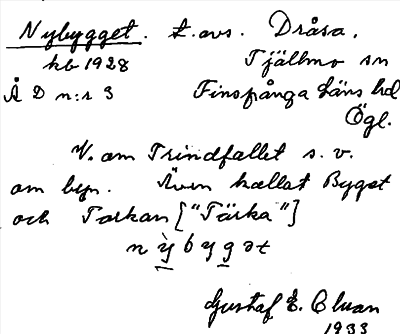 Nybygget. t. avs. Dråsa.
kb 1928 Tjällmo sn
Å D n:r 3 Finspånga läns hd
Ögl.
V. om Trindfallet s. v.
om byn. Även kallat Bygget
och Torkan ["Tärka"]
n ỳ b y g ət
Gustaf E. Cluan
1933